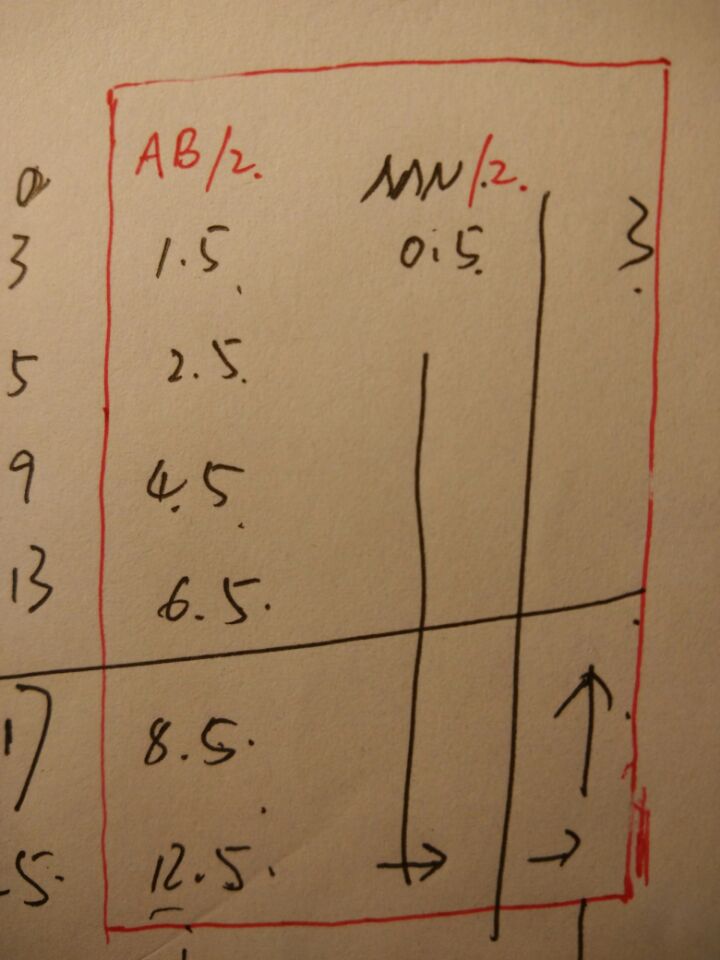 0 AB/2. MN/2.
3 1.5 0.5 3
5 2.5
9 4.5
13 6.5
17 8.5
5 12.5